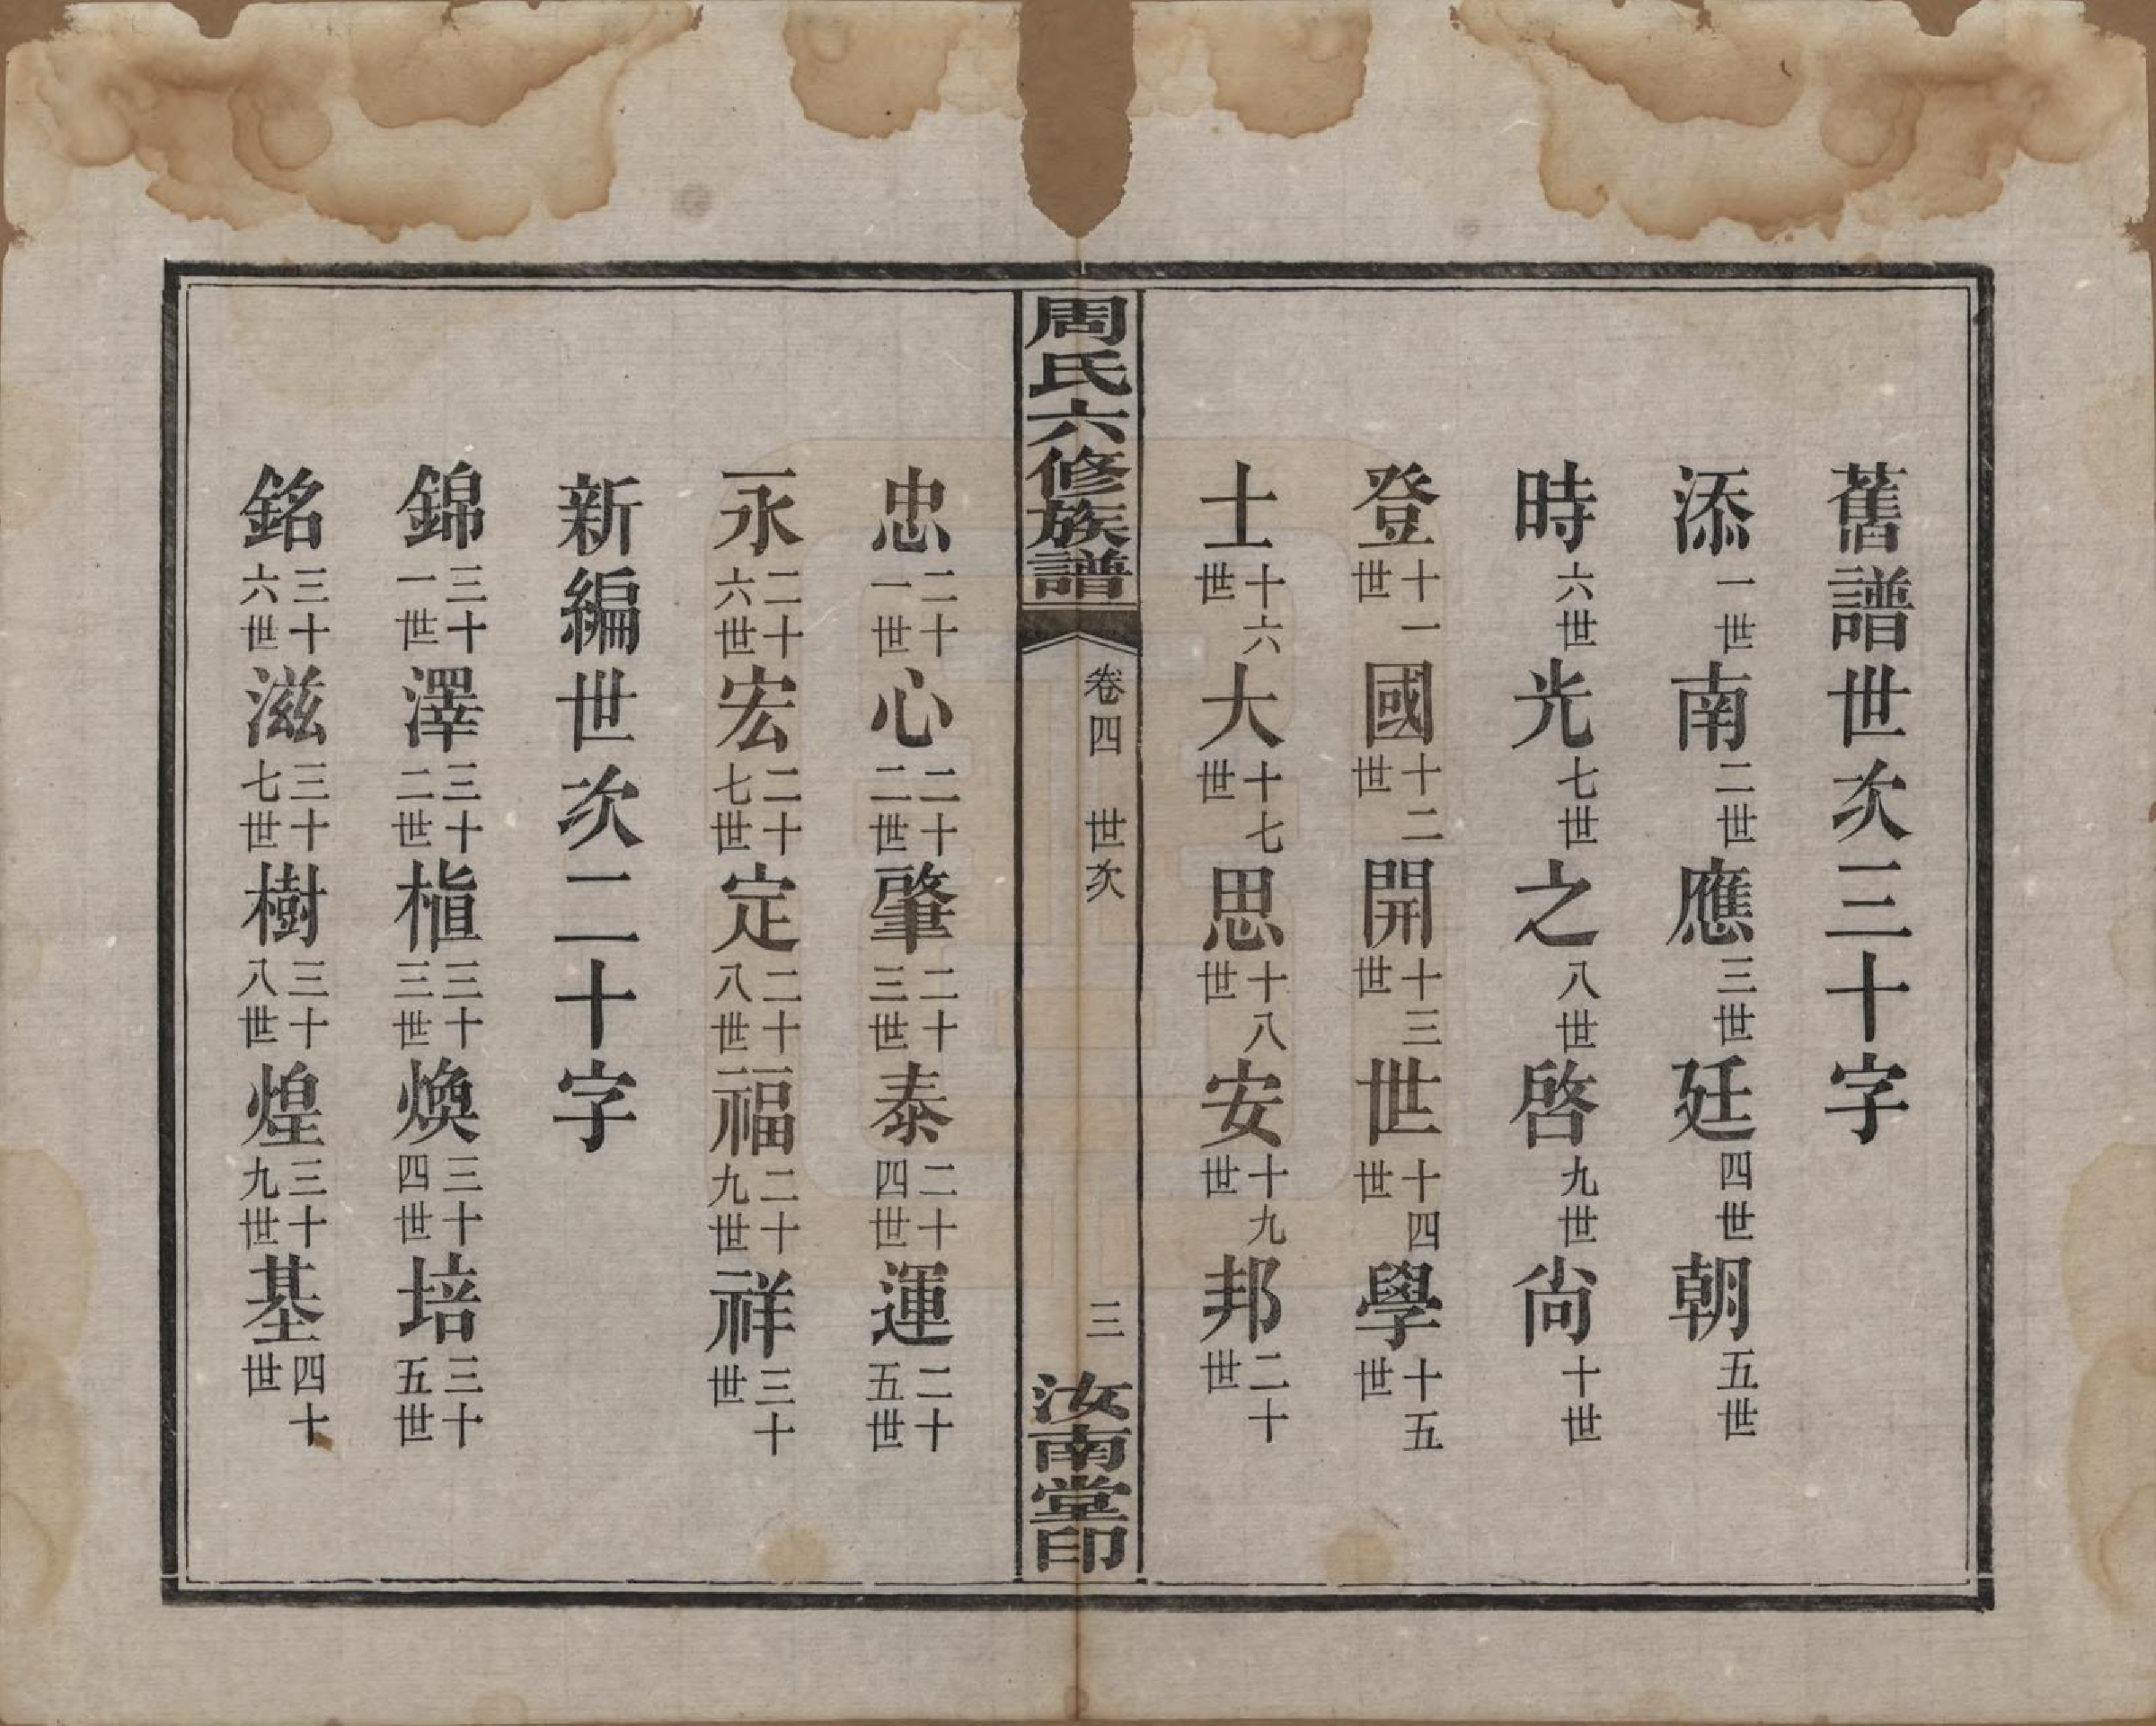 舊譜世次三十字
添一世南二世應三世廷四世朝五世
時六世光七世之八世啓九世尙十世
登十一世國十二世開十三世世十四世學十五世
士十六世大十七世思十八世安十九世邦二十世
周氏六修族譜
卷四 世次
三
汝南堂印
忠二十一世心二十二世肇二十三世泰二十四世運二十五世
永二十六世宏二十七世定二十八世福二十九世祥三十世
新編世次二十字
錦三十一世澤三十二世楷三十三世煥三十四世培三十五世
銘三十六世滋三十七世樹三十八世煌三十九世基四十世